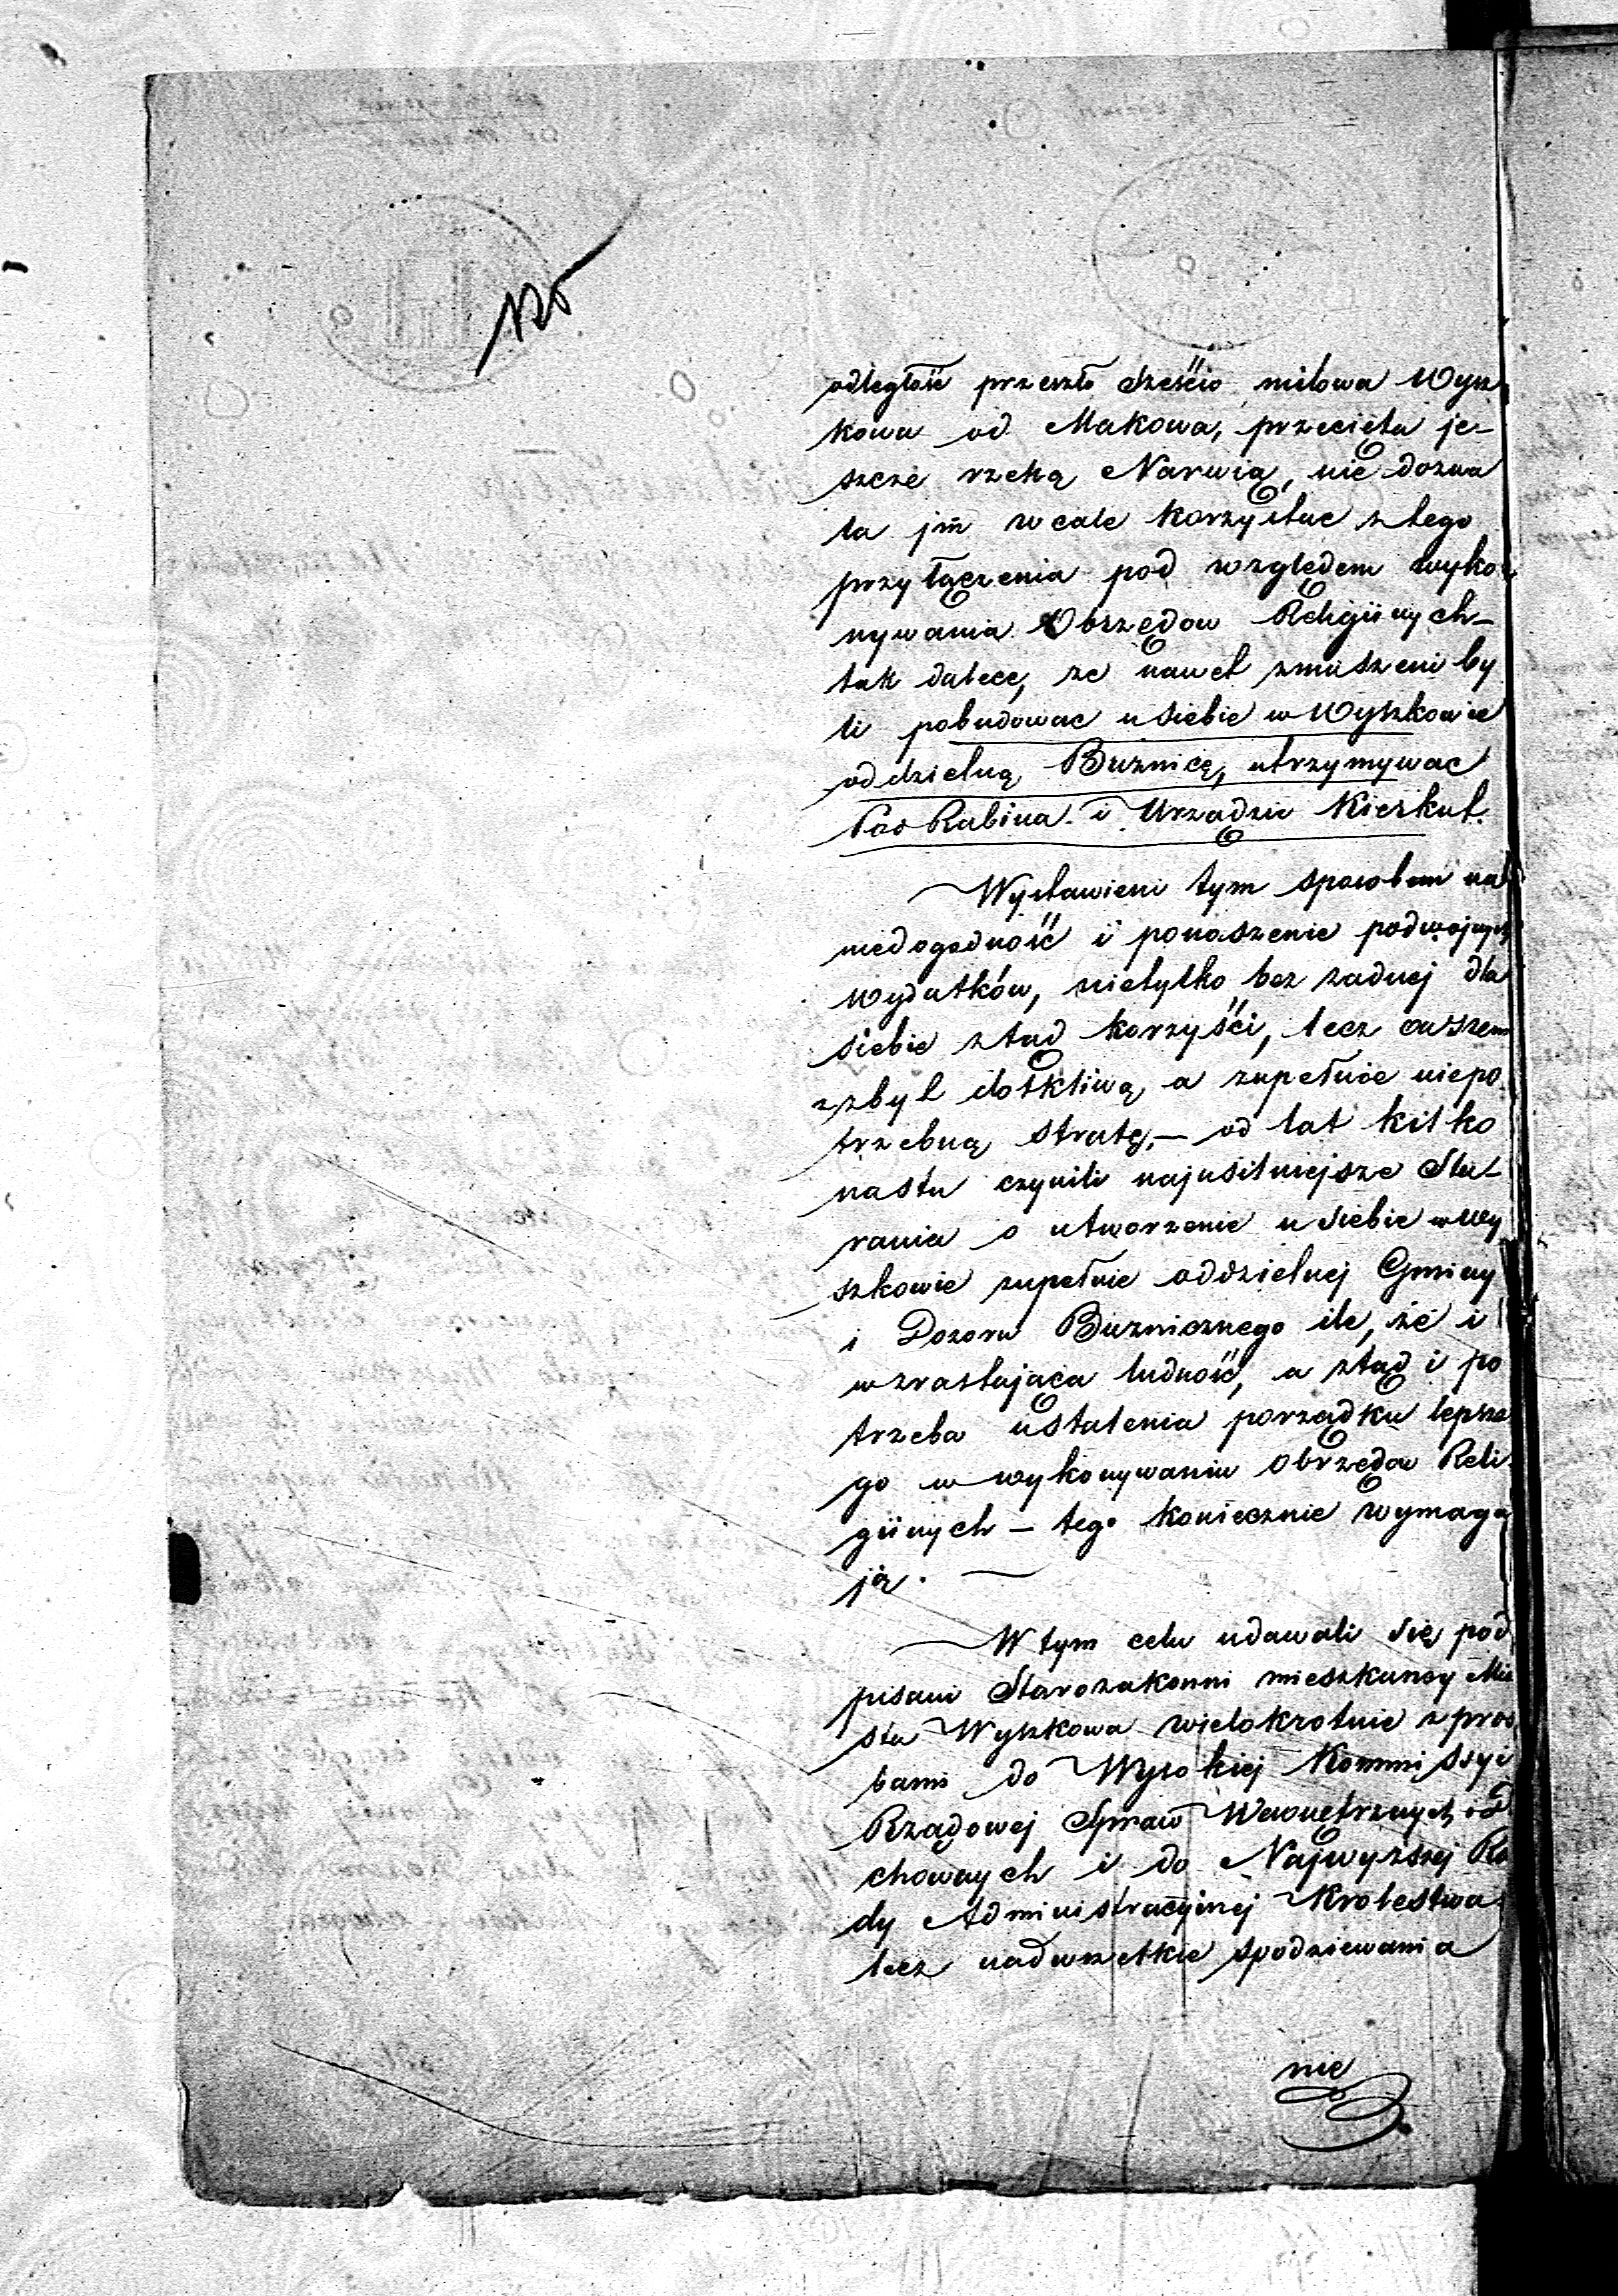 odległość przeszło sześcio milowa Wysz
kowa od Makowa, przecięta je-
szcze rzeką Narwią, nie dozwa
la jm wcale korzystac z tego
przyłączenia pod względem wyko
nywania Obrzędow Religiinych-
tak dalece, ze nawet zmuszeni by
li pobudowac u siebie w Wyszkowie
oddzielną Buznicę, utrzymywac
Pod Rabina i Urządzic Kierkut.
Wystawieni tym sposobem na
niedogodność i ponoszenie podwojnych
Wydatków, nietylko bez zadnej dla
siebie ztąd korzyści, lecz owszem
zbyt dotkliwą a zupełnie niepo
trzebną stratę,- od lat kilko
nastu czynili najusilniejsze Sta-
rania o utworzenie u siebie w Wy
szkowie zupełnie oddzielnej Gminy
i Dozoru Buzniczego ile, że i
wzrastająca ludność, a ztąd i po
trzeba ustalenia porządku lepsze
go w wykonywaniu Obrzędow Reli
giinych - tego koniecznie wymaga
ją. -
W tym celu udawali się pod
pisani Starozakonni mieszkancy Mia
sta Wyszkowa wielokrotnie z proś
bami do Wysokiej Kommissyi
Rządowej Spraw Wewnętrznych i D
chownych i do Najwyzszej Ra
dy Administracyinej Krolestwa
lecz nadwszelkie spodziewania
nie